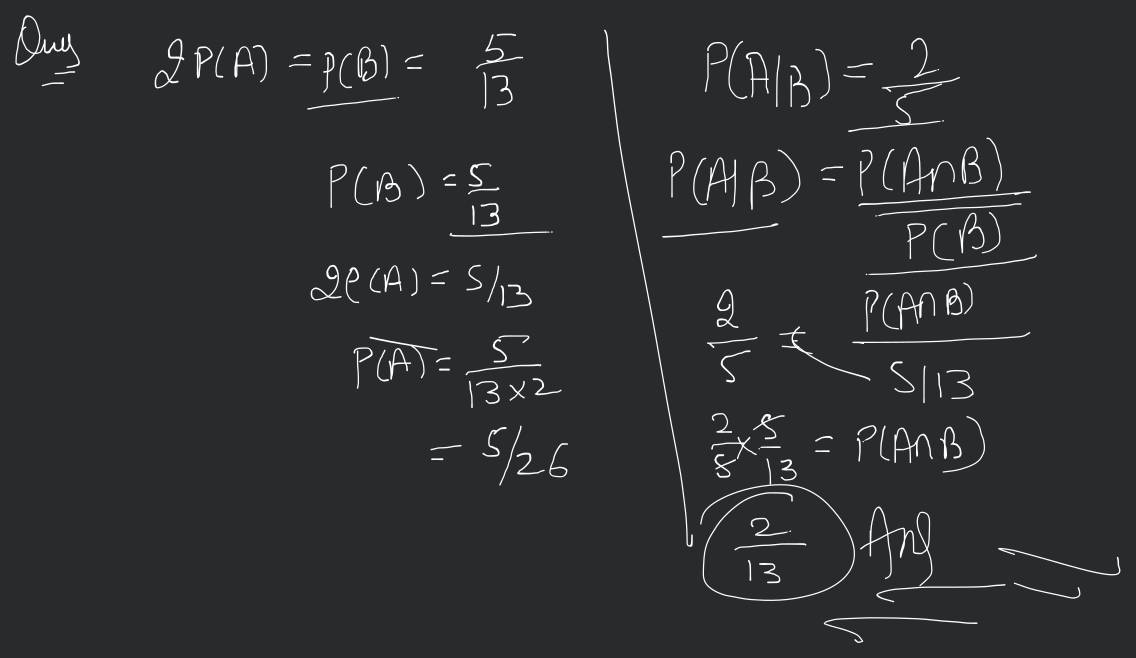 Ques 2P(A) = P(B) = 5/13
P(B) = 5/13
2P(A) = 5/13
P(A) = 5/(13×2)
= 5/26
P(A|B) = 2/5
P(A|B) = P(A∩B)/P(B)
2/5 = P(A∩B)/(5/13)
2/5 × 5/13 = P(A∩B)
2/13 Ans